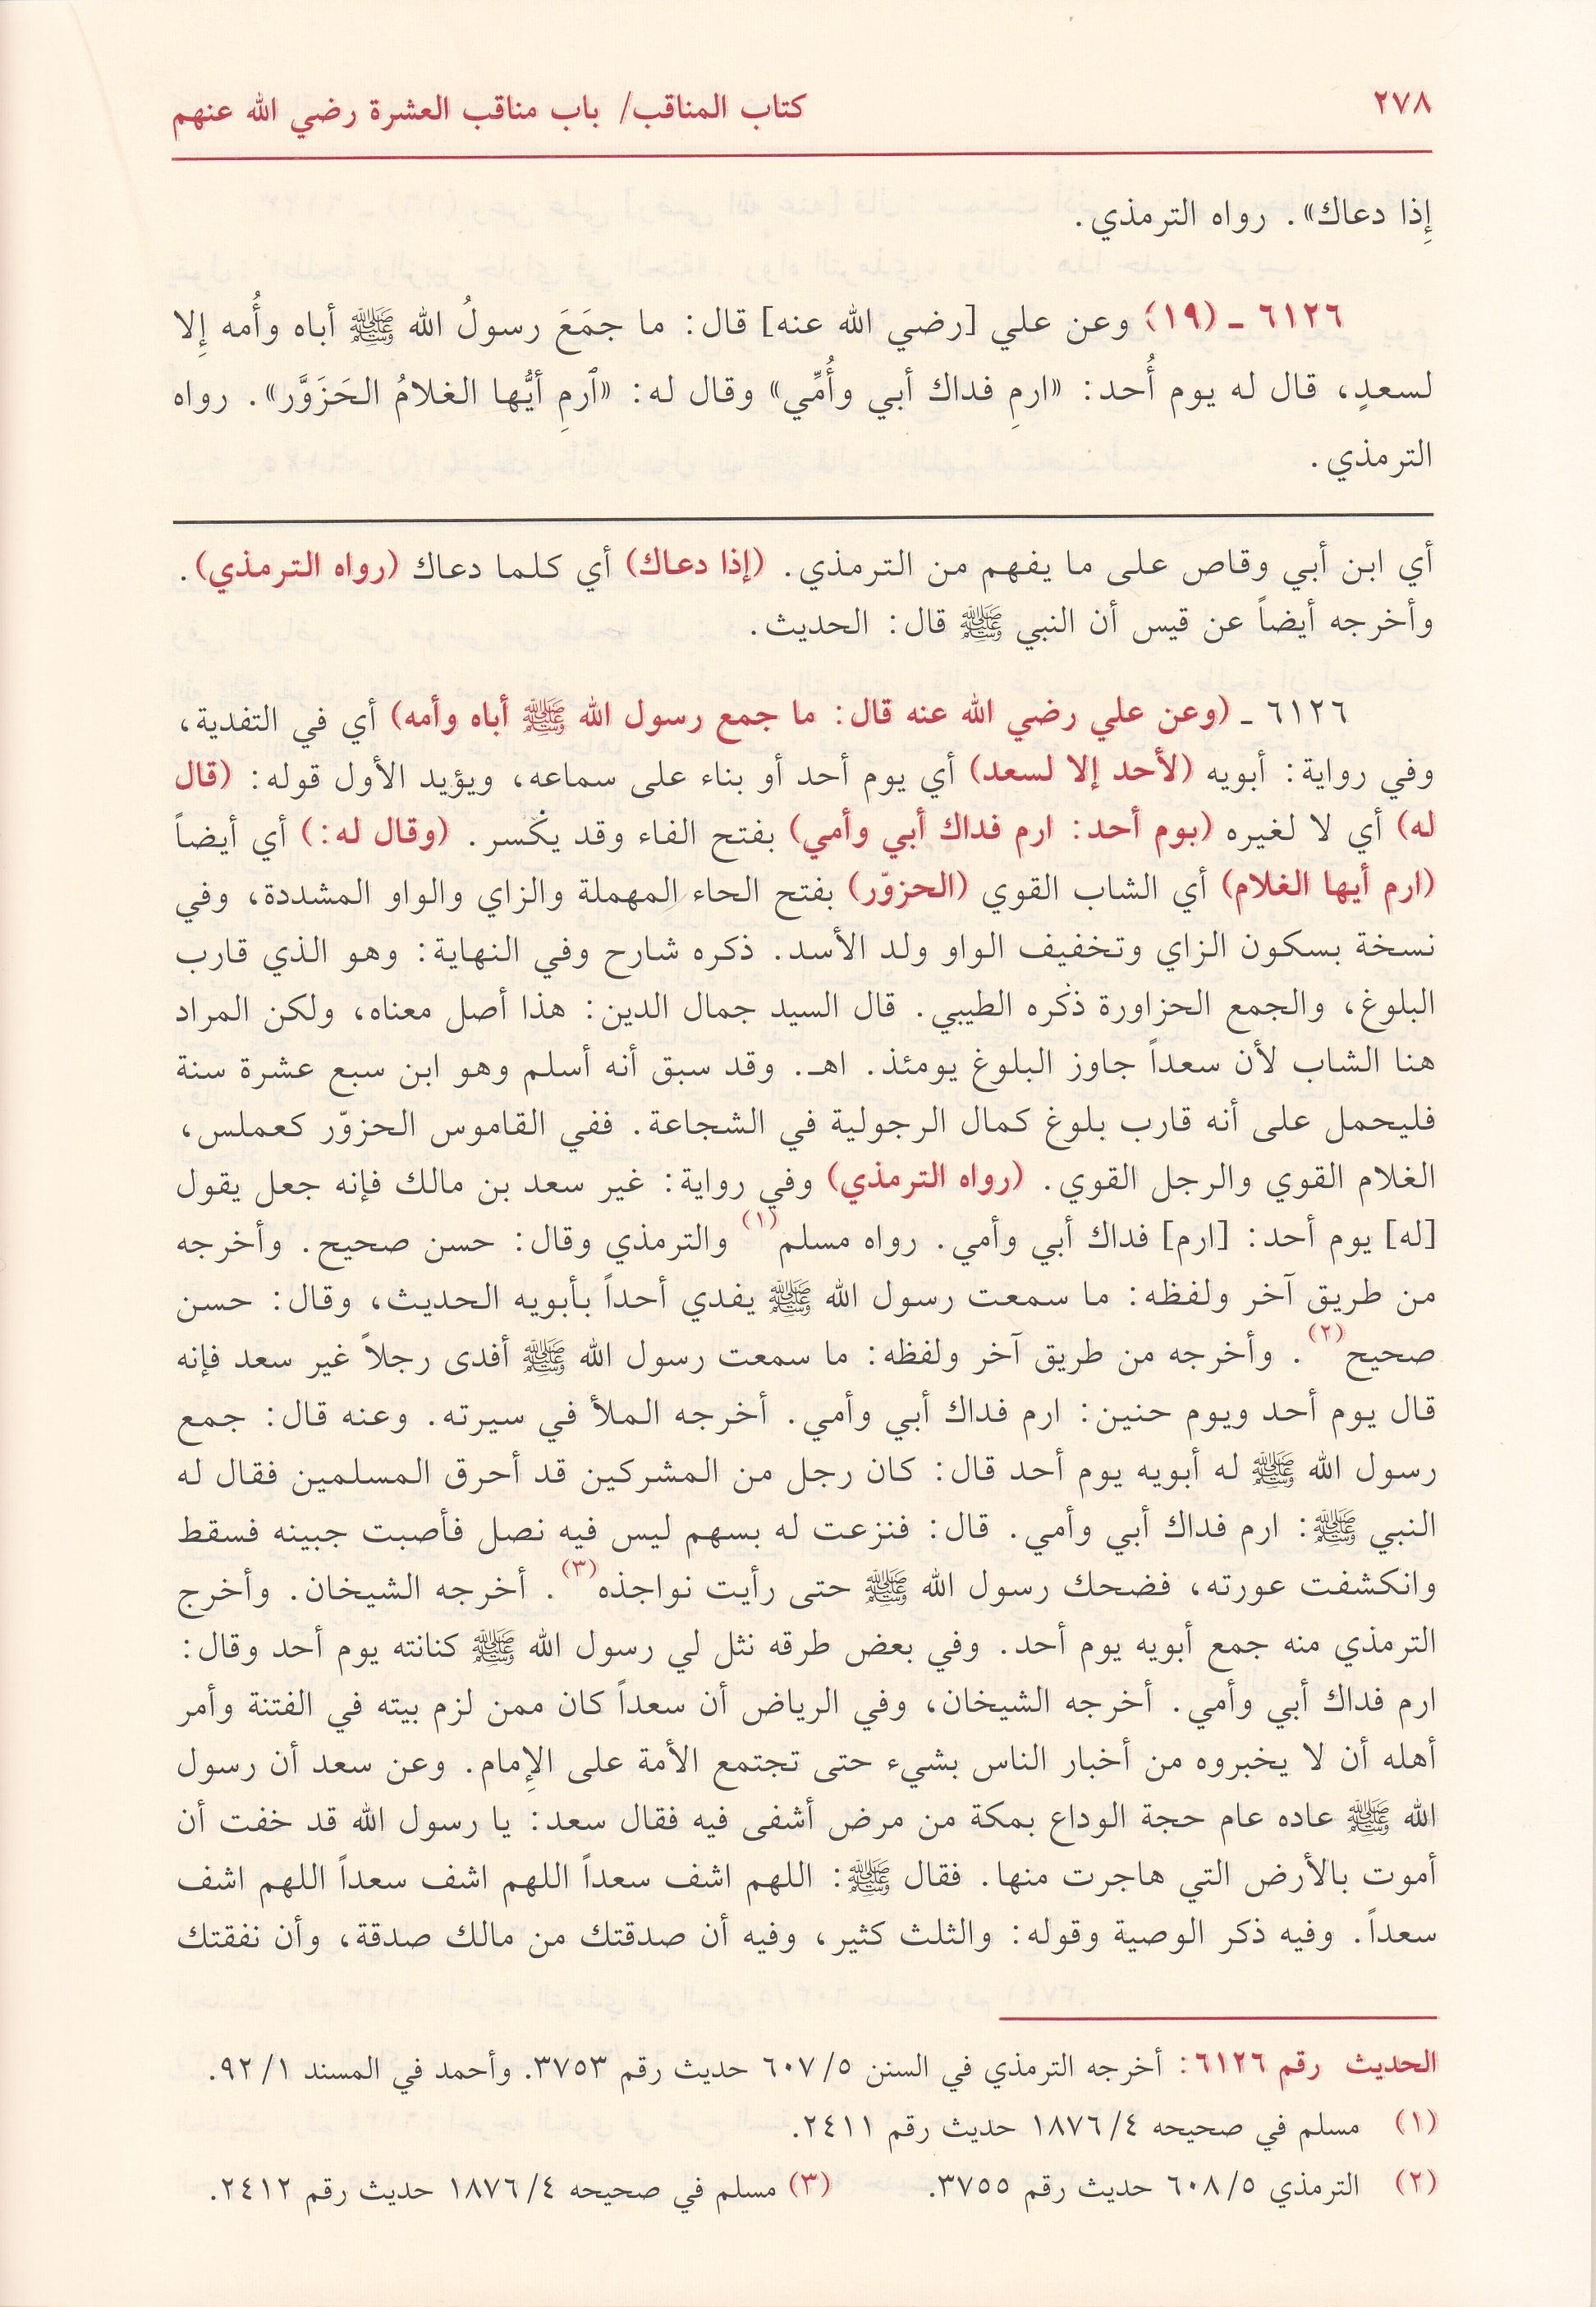 ٢٧٨ كتاب المناقب/ باب مناقب العشرة رضي الله عنهم
إِذا دعاك». رواه الترمذي.
٦١٢٦ ـ (١٩) وعن علي [رضي الله عنه] قال: ما جمَعَ رسولُ الله ﷺ أباه وأُمه إِلا
لسعدٍ، قال له يوم أُحد: «ارمِ فداك أبي وأُمِّي» وقال له: «ٱرمِ أيُّها الغلامُ الحَزَوَّر». رواه
الترمذي.
أي ابن أبي وقاص على ما يفهم من الترمذي. (إذا دعاك) أي كلما دعاك (رواه الترمذي).
وأخرجه أيضاً عن قيس أن النبي ﷺ قال: الحديث.
٦١٢٦ ـ (وعن علي رضي الله عنه قال: ما جمع رسول الله ﷺ أباه وأمه) أي في التفدية،
وفي رواية: أبويه (لأحد إلا لسعد) أي يوم أحد أو بناء على سماعه، ويؤيد الأول قوله: (قال
له) أي لا لغيره (بوم أحد: ارم فداك أبي وأمي) بفتح الفاء وقد يكسر. (وقال له:) أي أيضاً
(ارم أيها الغلام) أي الشاب القوي (الحزوّر) بفتح الحاء المهملة والزاي والواو المشددة، وفي
نسخة بسكون الزاي وتخفيف الواو ولد الأسد. ذكره شارح وفي النهاية: وهو الذي قارب
البلوغ، والجمع الحزاورة ذكره الطيبي. قال السيد جمال الدين: هذا أصل معناه، ولكن المراد
هنا الشاب لأن سعداً جاوز البلوغ يومئذ. اهـ. وقد سبق أنه أسلم وهو ابن سبع عشرة سنة
فليحمل على أنه قارب بلوغ كمال الرجولية في الشجاعة. ففي القاموس الحزوّر كعملس،
الغلام القوي والرجل القوي. (رواه الترمذي) وفي رواية: غير سعد بن مالك فإنه جعل يقول
[له] يوم أحد: [ارم] فداك أبي وأمي. رواه مسلم(١) والترمذي وقال: حسن صحيح. وأخرجه
من طريق آخر ولفظه: ما سمعت رسول الله ﷺ يفدي أحداً بأبويه الحديث، وقال: حسن
صحيح(٢). وأخرجه من طريق آخر ولفظه: ما سمعت رسول الله ﷺ أفدى رجلاً غير سعد فإنه
قال يوم أحد ويوم حنين: ارم فداك أبي وأمي. أخرجه الملأ في سيرته. وعنه قال: جمع
رسول الله ﷺ له أبويه يوم أحد قال: كان رجل من المشركين قد أحرق المسلمين فقال له
النبي ﷺ: ارم فداك أبي وأمي. قال: فنزعت له بسهم ليس فيه نصل فأصبت جبينه فسقط
وانكشفت عورته، فضحك رسول الله ﷺ حتى رأيت نواجذه(٣). أخرجه الشيخان. وأخرج
الترمذي منه جمع أبويه يوم أحد. وفي بعض طرقه نثل لي رسول الله ﷺ كنانته يوم أحد وقال:
ارم فداك أبي وأمي. أخرجه الشيخان، وفي الرياض أن سعداً كان ممن لزم بيته في الفتنة وأمر
أهله أن لا يخبروه من أخبار الناس بشيء حتى تجتمع الأمة على الإِمام. وعن سعد أن رسول
الله ﷺ عاده عام حجة الوداع بمكة من مرض أشفى فيه فقال سعد: يا رسول الله قد خفت أن
أموت بالأرض التي هاجرت منها. فقال ﷺ: اللهم اشف سعداً اللهم اشف سعداً اللهم اشف
سعداً. وفيه ذكر الوصية وقوله: والثلث كثير، وفيه أن صدقتك من مالك صدقة، وأن نفقتك
الحديث رقم ٦١٢٦: أخرجه الترمذي في السنن ٥/ ٦٠٧ حديث رقم ٣٧٥٣. وأحمد في المسند ١/ ٩٢.
(١) مسلم في صحيحه ٤/ ١٨٧٦ حديث رقم ٢٤١١.
(٢) الترمذي ٥/ ٦٠٨ حديث رقم ٣٧٥٥. (٣) مسلم في صحيحه ٤/ ١٨٧٦ حديث رقم ٢٤١٢.